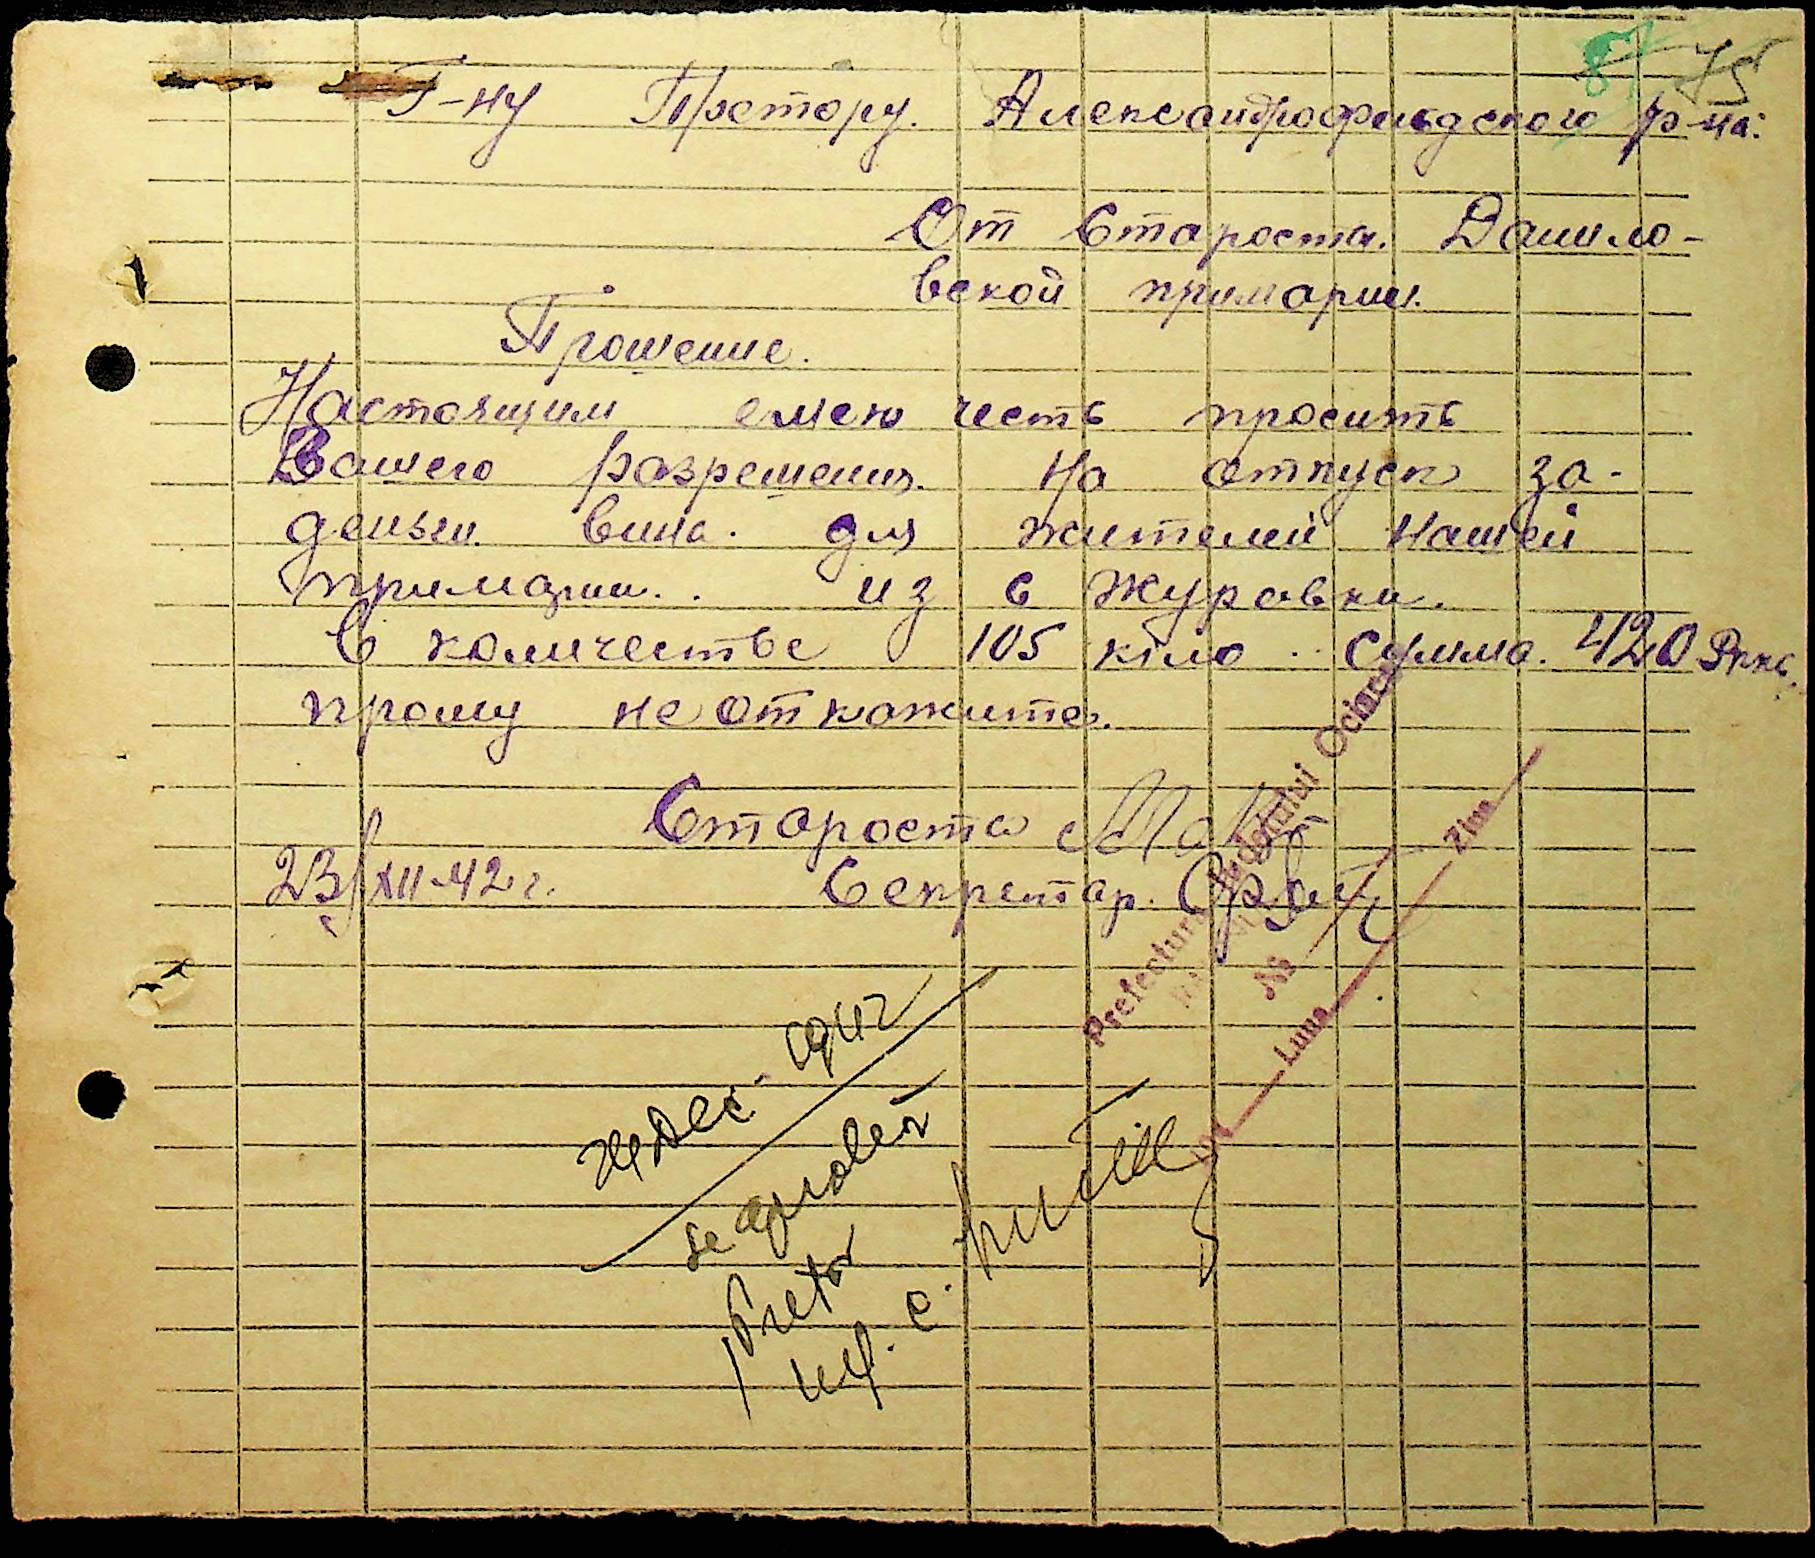 87 75
Г-ну Претору. Александрофельдского р-на.
От Староста. Данило-
вской примарии.
Прошение.
Настоящим емею честь просить
Вашего разрешения. На отпуск за-
деньги вина. для жителей нашей
примарии.. из с Журавки.
В количестве 105 кіло.. сумма. 420 Рпкс.
прошу не откажите.
Староста
23/XII-42 г. Секретар.
Prefectura Judetului Ociacov
№
Luna Ziua
24 Dec. 1942
se aproba
Pretor